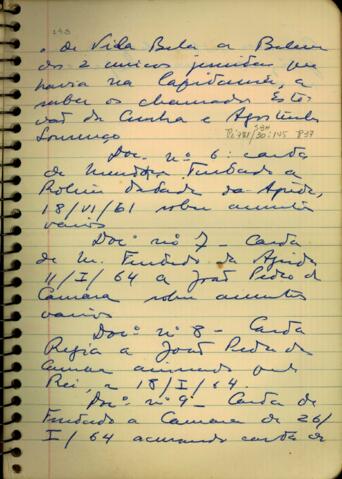 de Vila Bela a Belem
os 2 unicos jesuitas que
havia na Capitania, a
saber os chamados Este-
vão da Cunha e Agostinho
Lourenço
Doc. nº 6: carta
de Furtado a
Rolim datada da Ajuda,
18/VI/61 sobre assuntos
varios
Docº nº 7 - Carta
de M. Furtado da Ajuda
11/I/64 a João Pedro da
Camara sobre assuntos
varios
Docº nº 8 - Carta
Regia a João Pedro da
Camara assinada pelo
Rei, a 18/I/64.
Docº nº 9 - Carta de
Furtado a Camara de 26/
I/64 acusando carta de